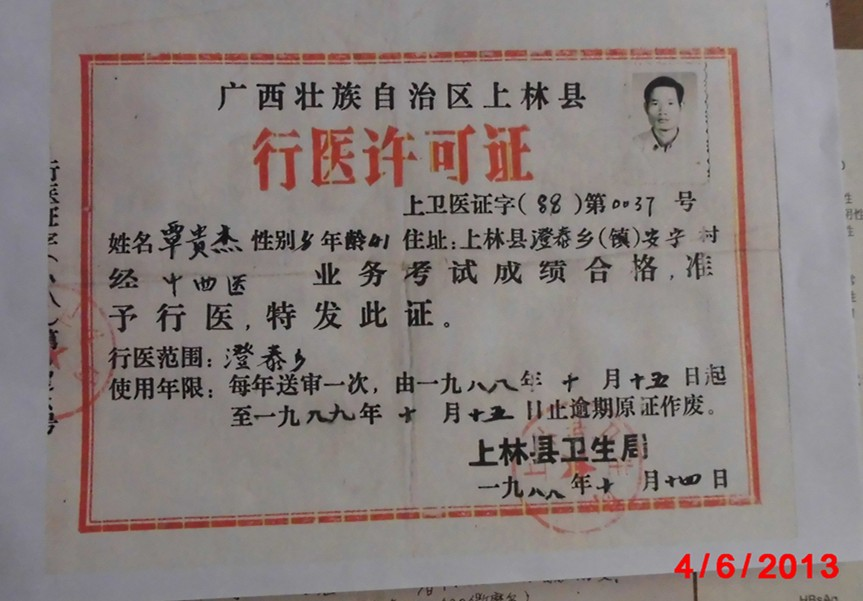 广西壮族自治区上林县
行医许可证
上卫医证字(88)第0037号
姓名 覃贵杰 性别 年龄41 住址:上林县澄泰乡(镇)安宁村
经 中西医 业务考试成绩合格,准
予行医,特发此证。
行医范围:澄泰乡
使用年限:每年送审一次,由一九八八年十月十五日起
至一九八九年十月十五日止逾期原证作废。
上林县卫生局
一九八八年十月十四日
4/6/2013
HBsAg